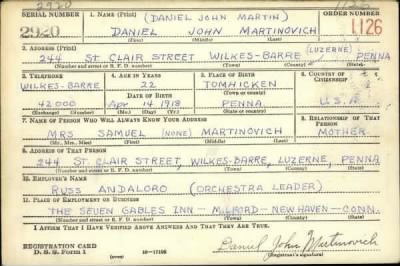 2920 1126
SERIAL NUMBER 1. NAME (Print) (DANIEL JOHN MARTIN) ORDER NUMBER
2920 DANIEL JOHN MARTINOVICH 1126
(First) (Middle) (Last)
2. ADDRESS (Print) (LUZERNE)
244 ST CLAIR STREET WILKES-BARRE PENNA
(Number and street or R. F. D. number) (Town) (County) (State)
3. TELEPHONE 4. AGE IN YEARS 5. PLACE OF BIRTH 6. COUNTRY OF CITIZENSHIP
WILKES-BARRE 22 TOMHICKEN
DATE OF BIRTH (Town or county)
42000 Apr 14 1918 PENNA U.S.A.
(Exchange) (Number) (Mo.) (Day) (Yr.) (State or country)
7. NAME OF PERSON WHO WILL ALWAYS KNOW YOUR ADDRESS 8. RELATIONSHIP OF THAT PERSON
MRS SAMUEL (NONE) MARTINOVICH MOTHER
(Mr., Mrs., Miss) (First) (Middle) (Last)
9. ADDRESS OF THAT PERSON
244 ST. CLAIR STREET, WILKES-BARRE, LUZERNE, PENNA
(Number and street or R. F. D. number) (Town) (County) (State)
10. EMPLOYER'S NAME
RUSS ANDALORO (ORCHESTRA LEADER)
11. PLACE OF EMPLOYMENT OR BUSINESS
THE SEVEN GABLES INN - MILFORD - NEW HAVEN - CONN.
(Number and street or R. F. D. number) (Town) (County) (State)
I AFFIRM THAT I HAVE VERIFIED ABOVE ANSWERS AND THAT THEY ARE TRUE.
REGISTRATION CARD
D. S. S. Form 1 16-17105 Daniel John Martinovich
(Registrant's signature)